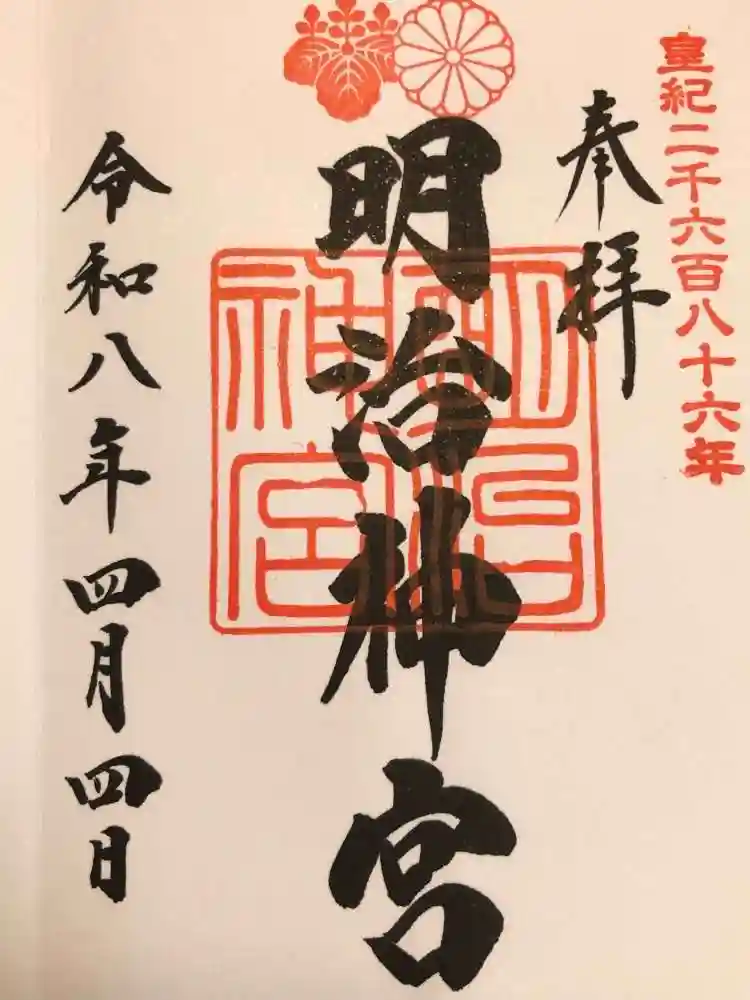 皇紀二千六百八十六年
奉拝
明治神宮
明治神宮
令和八年四月四日